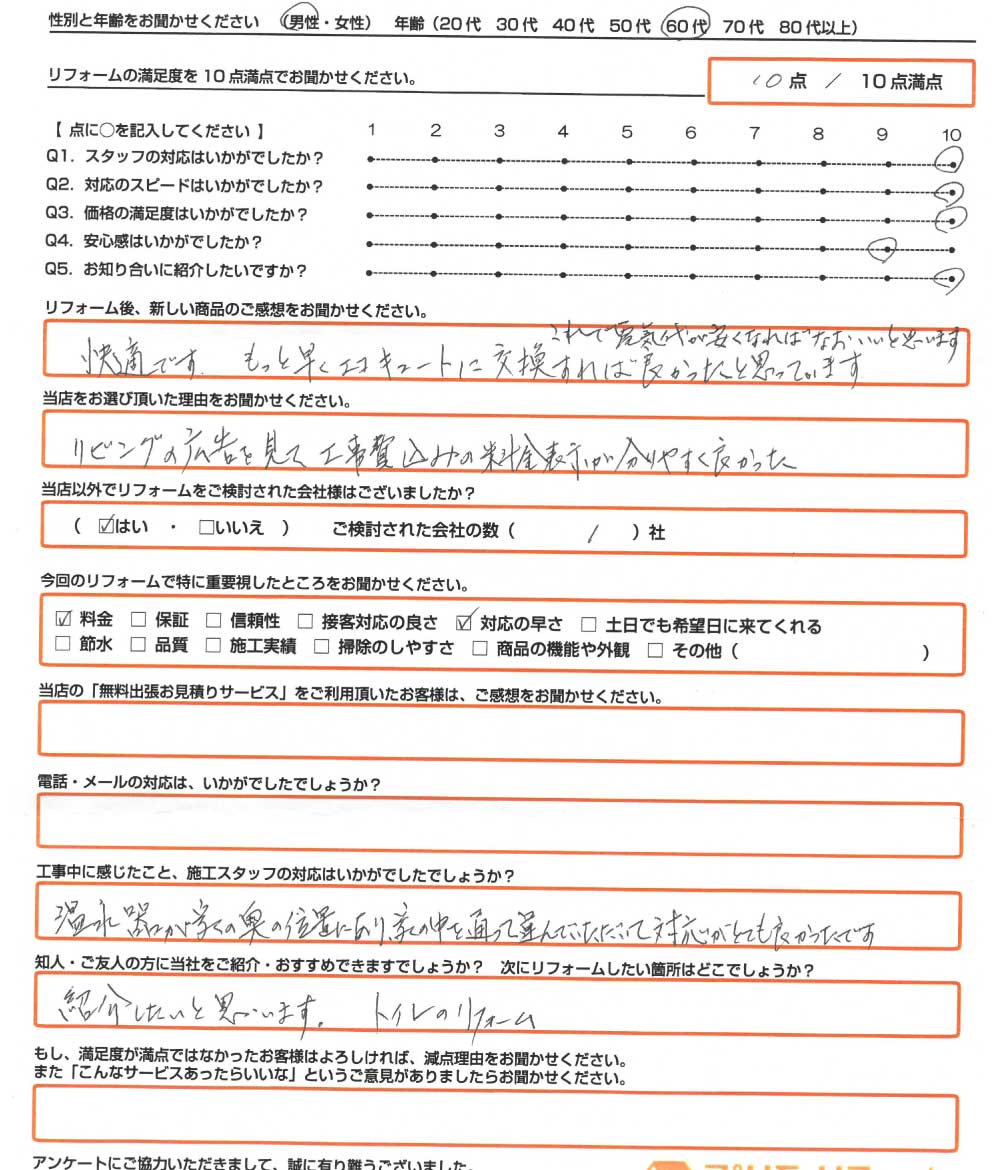 性別と年齢をお聞かせください (男性・女性) 年齢(20代 30代 40代 50代 60代 70代 80代以上)
リフォームの満足度を10点満点でお聞かせください。 10点 / 10点満点
【 点に○を記入してください 】 1 2 3 4 5 6 7 8 9 10
Q1. スタッフの対応はいかがでしたか?
Q2. 対応のスピードはいかがでしたか?
Q3. 価格の満足度はいかがでしたか?
Q4. 安心感はいかがでしたか?
Q5. お知り合いに紹介したいですか?
リフォーム後、新しい商品のご感想をお聞かせください。
快適です。もっと早くエコキュートに交換すれば良かったと思っています
これで電気代が安くなればなおいいと思います
当店をお選び頂いた理由をお聞かせください。
リビングの広告を見て 工事費込みの料金表示が分りやすく良かった
当店以外でリフォームをご検討された会社様はございましたか?
( ☑はい ・ □いいえ ) ご検討された会社の数( 1 )社
今回のリフォームで特に重要視したところをお聞かせください。
☑ 料金 □ 保証 □ 信頼性 □ 接客対応の良さ ☑ 対応の早さ □ 土日でも希望日に来てくれる
□ 節水 □ 品質 □ 施工実績 □ 掃除のしやすさ □ 商品の機能や外観 □ その他( )
当店の「無料出張お見積りサービス」をご利用頂いたお客様は、ご感想をお聞かせください。
電話・メールの対応は、いかがでしたでしょうか?
工事中に感じたこと、施工スタッフの対応はいかがでしたでしょうか?
温水器が家の奥の位置にあり、家の中を通って運んでいただいて対応がとても良かったです
知人・ご友人の方に当社をご紹介・おすすめできますでしょうか? 次にリフォームしたい箇所はどこでしょうか?
紹介したいと思います。 トイレのリフォーム
もし、満足度が満点ではなかったお客様はよろしければ、減点理由をお聞かせください。
また「こんなサービスあったらいいな」というご意見がありましたらお聞かせください。
アンケートにご協力いただきまして、誠に有り難うございました。